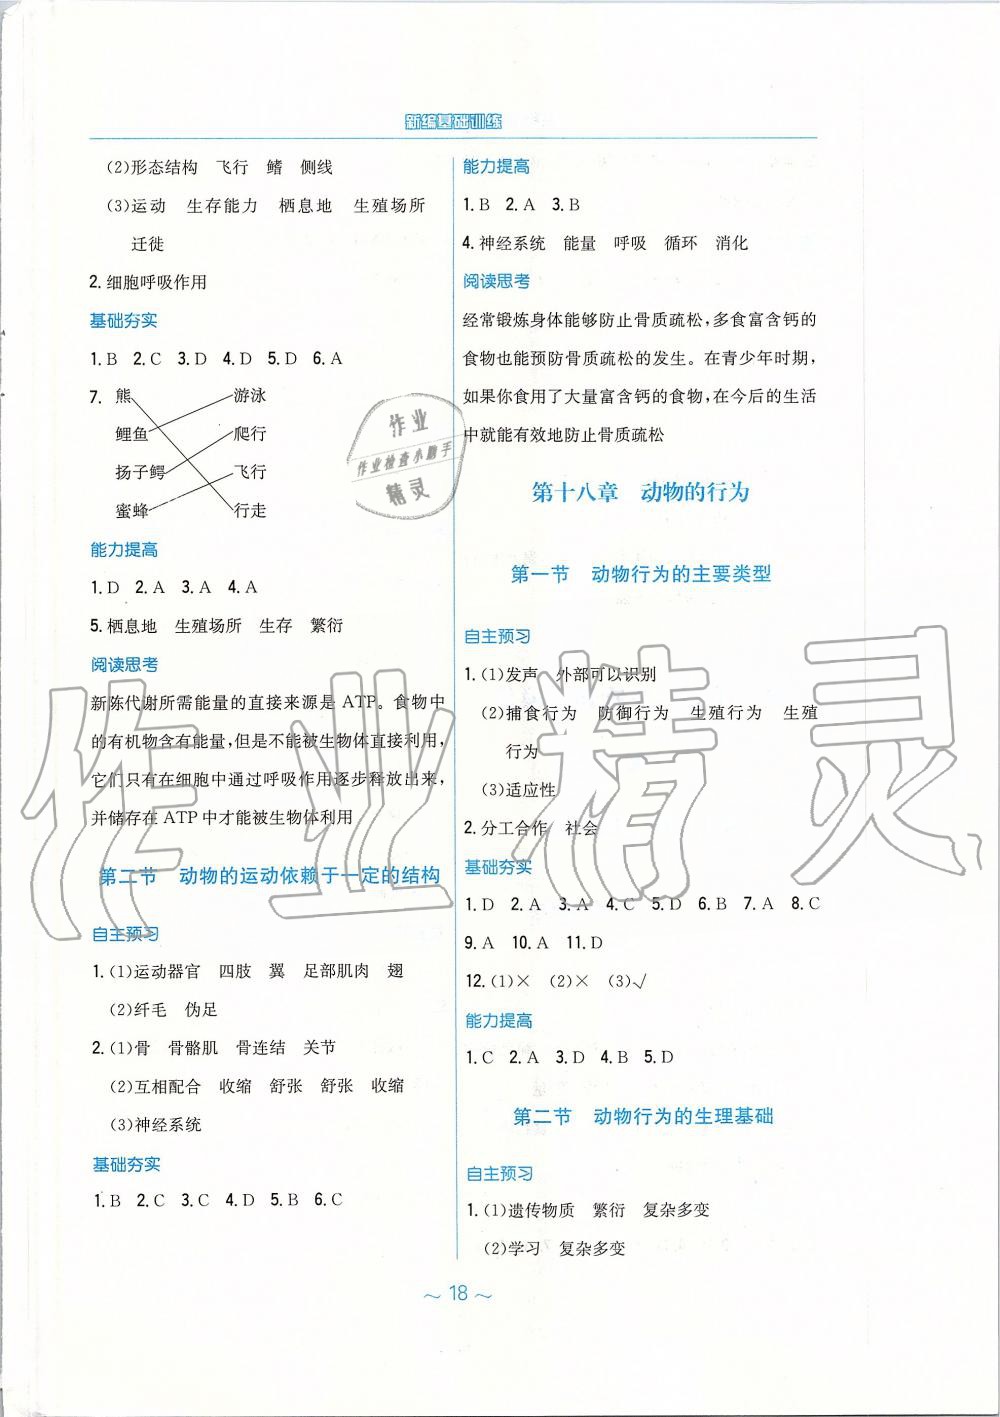 新编基础训练
(2)形态结构 飞行 鳍 侧线
(3)运动 生存能力 栖息地 生殖场所
迁徙
2. 细胞呼吸作用
基础夯实
1. B 2. C 3. D 4. D 5. D 6. A
7. 熊 游泳
鲤鱼 爬行
扬子鳄 飞行
蜜蜂 行走
能力提高
1. D 2. A 3. A 4. A
5. 栖息地 生殖场所 生存 繁衍
阅读思考
新陈代谢所需能量的直接来源是 ATP。食物中
的有机物含有能量,但是不能被生物体直接利用,
它们只有在细胞中通过呼吸作用逐步释放出来,
并储存在 ATP 中才能被生物体利用
第二节 动物的运动依赖于一定的结构
自主预习
1. (1)运动器官 四肢 翼 足部肌肉 翅
(2)纤毛 伪足
2. (1)骨 骨骼肌 骨连结 关节
(2)互相配合 收缩 舒张 舒张 收缩
(3)神经系统
基础夯实
1. B 2. C 3. C 4. D 5. B 6. C
能力提高
1. B 2. A 3. B
4. 神经系统 能量 呼吸 循环 消化
阅读思考
经常锻炼身体能够防止骨质疏松,多食富含钙的
食物也能预防骨质疏松的发生。在青少年时期,
如果你食用了大量富含钙的食物,在今后的生活
中就能有效地防止骨质疏松
第十八章 动物的行为
第一节 动物行为的主要类型
自主预习
1. (1)发声 外部可以识别
(2)捕食行为 防御行为 生殖行为 生殖
行为
(3)适应性
2. 分工合作 社会
基础夯实
1. D 2. A 3. A 4. C 5. D 6. B 7. A 8. C
9. A 10. A 11. D
12. (1)× (2)× (3)√
能力提高
1. C 2. A 3. D 4. B 5. D
第二节 动物行为的生理基础
自主预习
1. (1)遗传物质 繁衍 复杂多变
(2)学习 复杂多变
~ 18 ~
作业
作业检查小助手
精灵
作业精灵